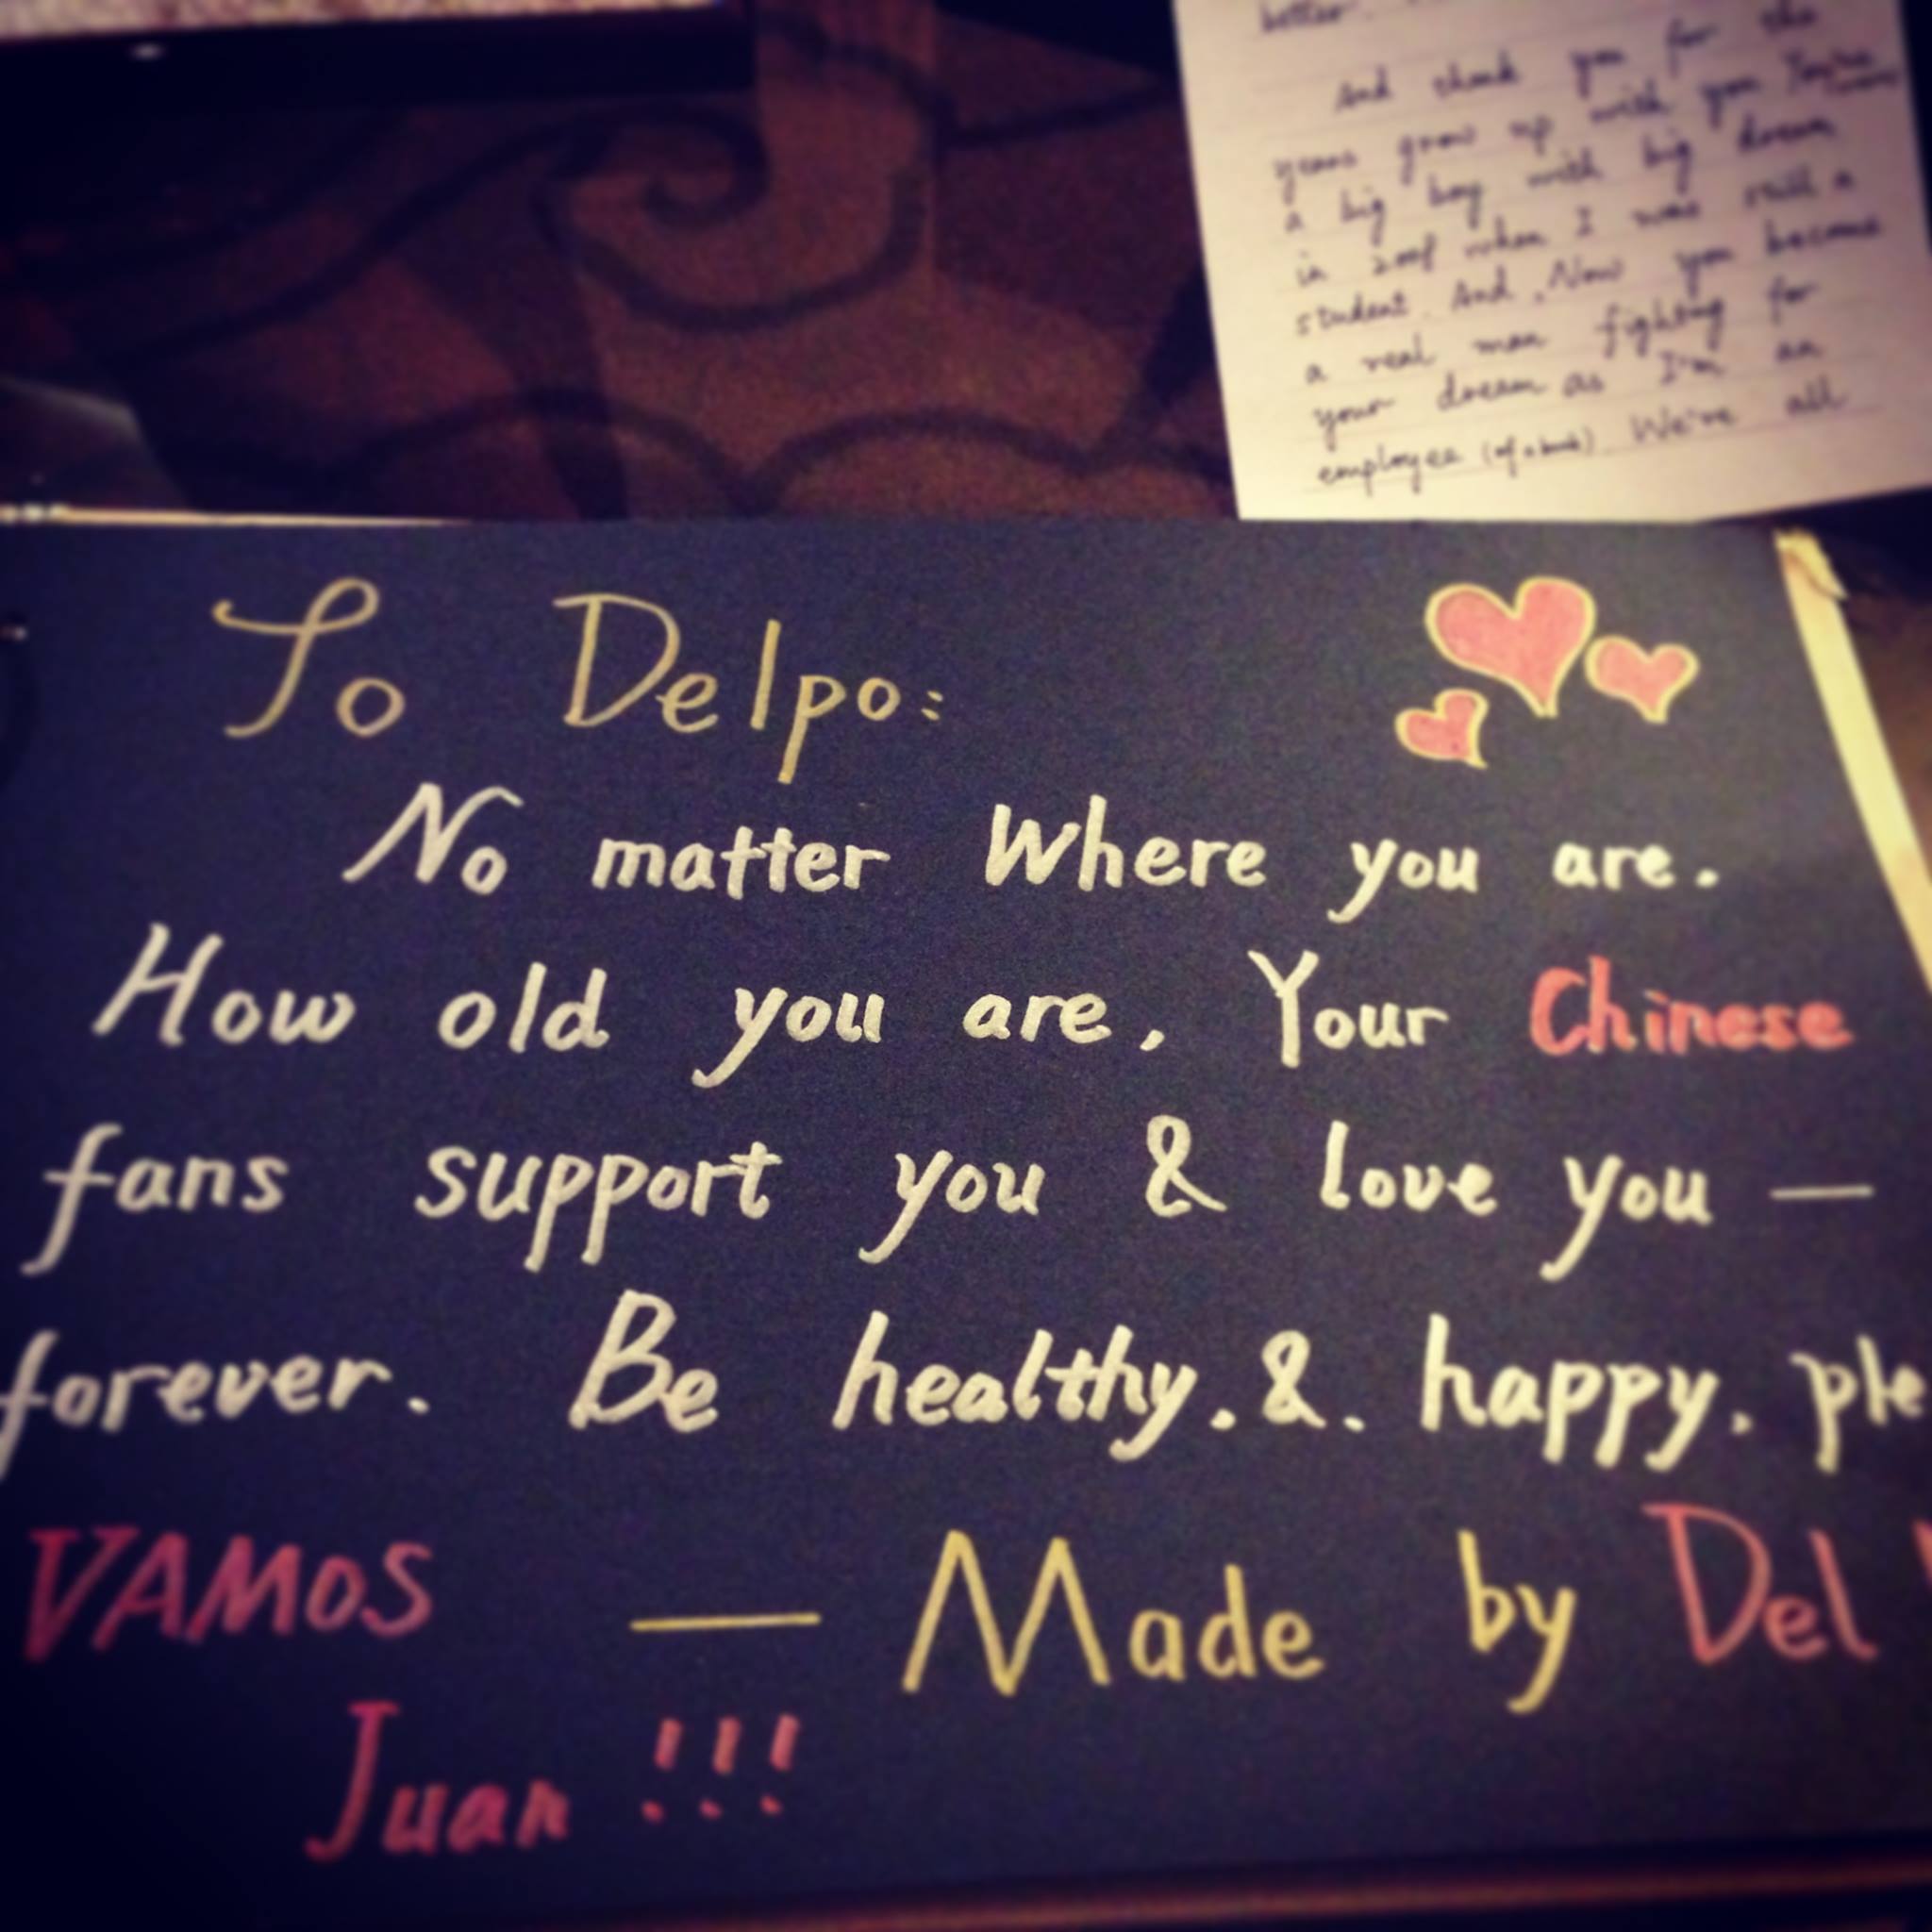 better.
And thank you for the
years grow up with you You're
a big boy with big dream
in when I was still a
student. And, Now you become
a real man fighting for
your dream as I'm an
employee (of a bank) We're all
To Delpo:
No matter Where you are.
How old you are, Your Chinese
fans support you & love you —
forever. Be healthy.&. happy. ple
VAMOS — Made by Del
Juan !!!